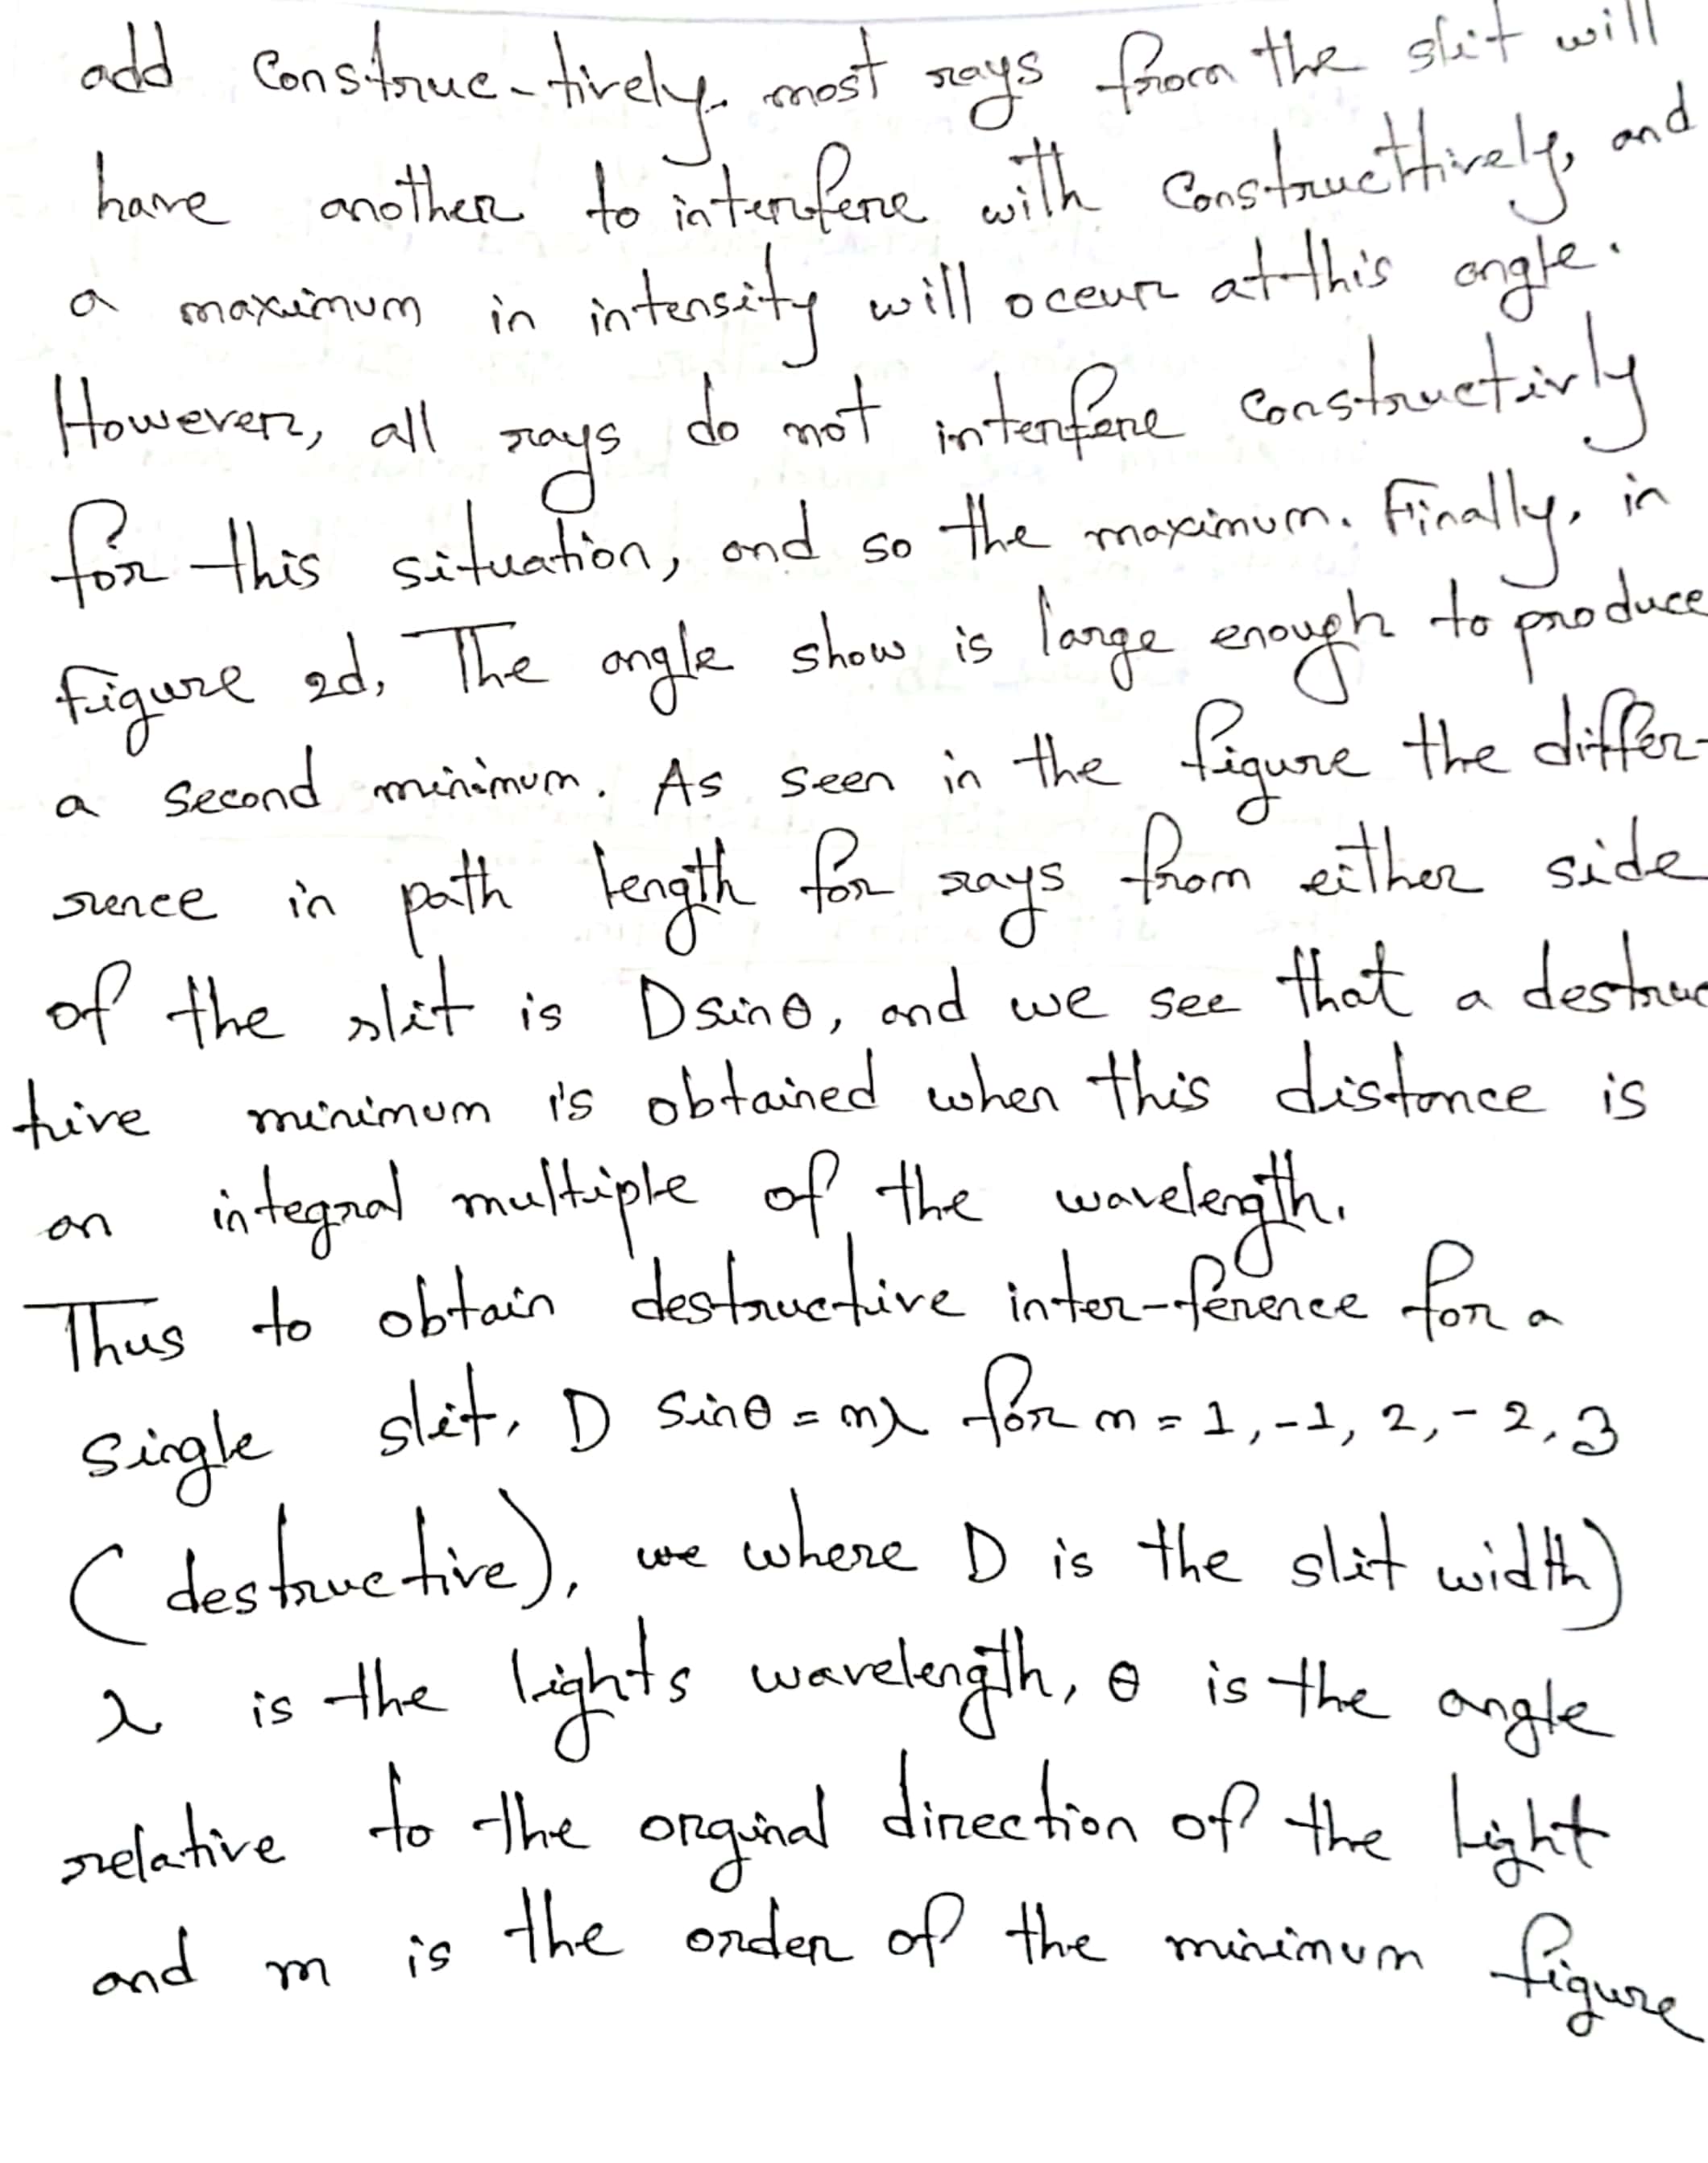 add Construc-tively. most rays from the slit will
have another to interfere with Constructtively, and
a maximum in intensity will occur at this angle.
However, all rays do not interfere constructivly
for this situation, and so the maximum. Finally, in
figure 2d, The angle show is large enough to produce
a second minimum. As seen in the figure the differ-
rence in path length for rays from either side
of the slit is D sinθ, and we see that a destruc
tive minimum is obtained when this distance is
an integral multiple of the wavelength.
Thus to obtain destructive inter-ference for a
single slit, D sinθ = mλ for m = 1, -1, 2, -2, 3
(destructive), we where D is the slit width)
λ is the lights wavelength, θ is the angle
relative to the orginal direction of the light
and m is the order of the minimum figure